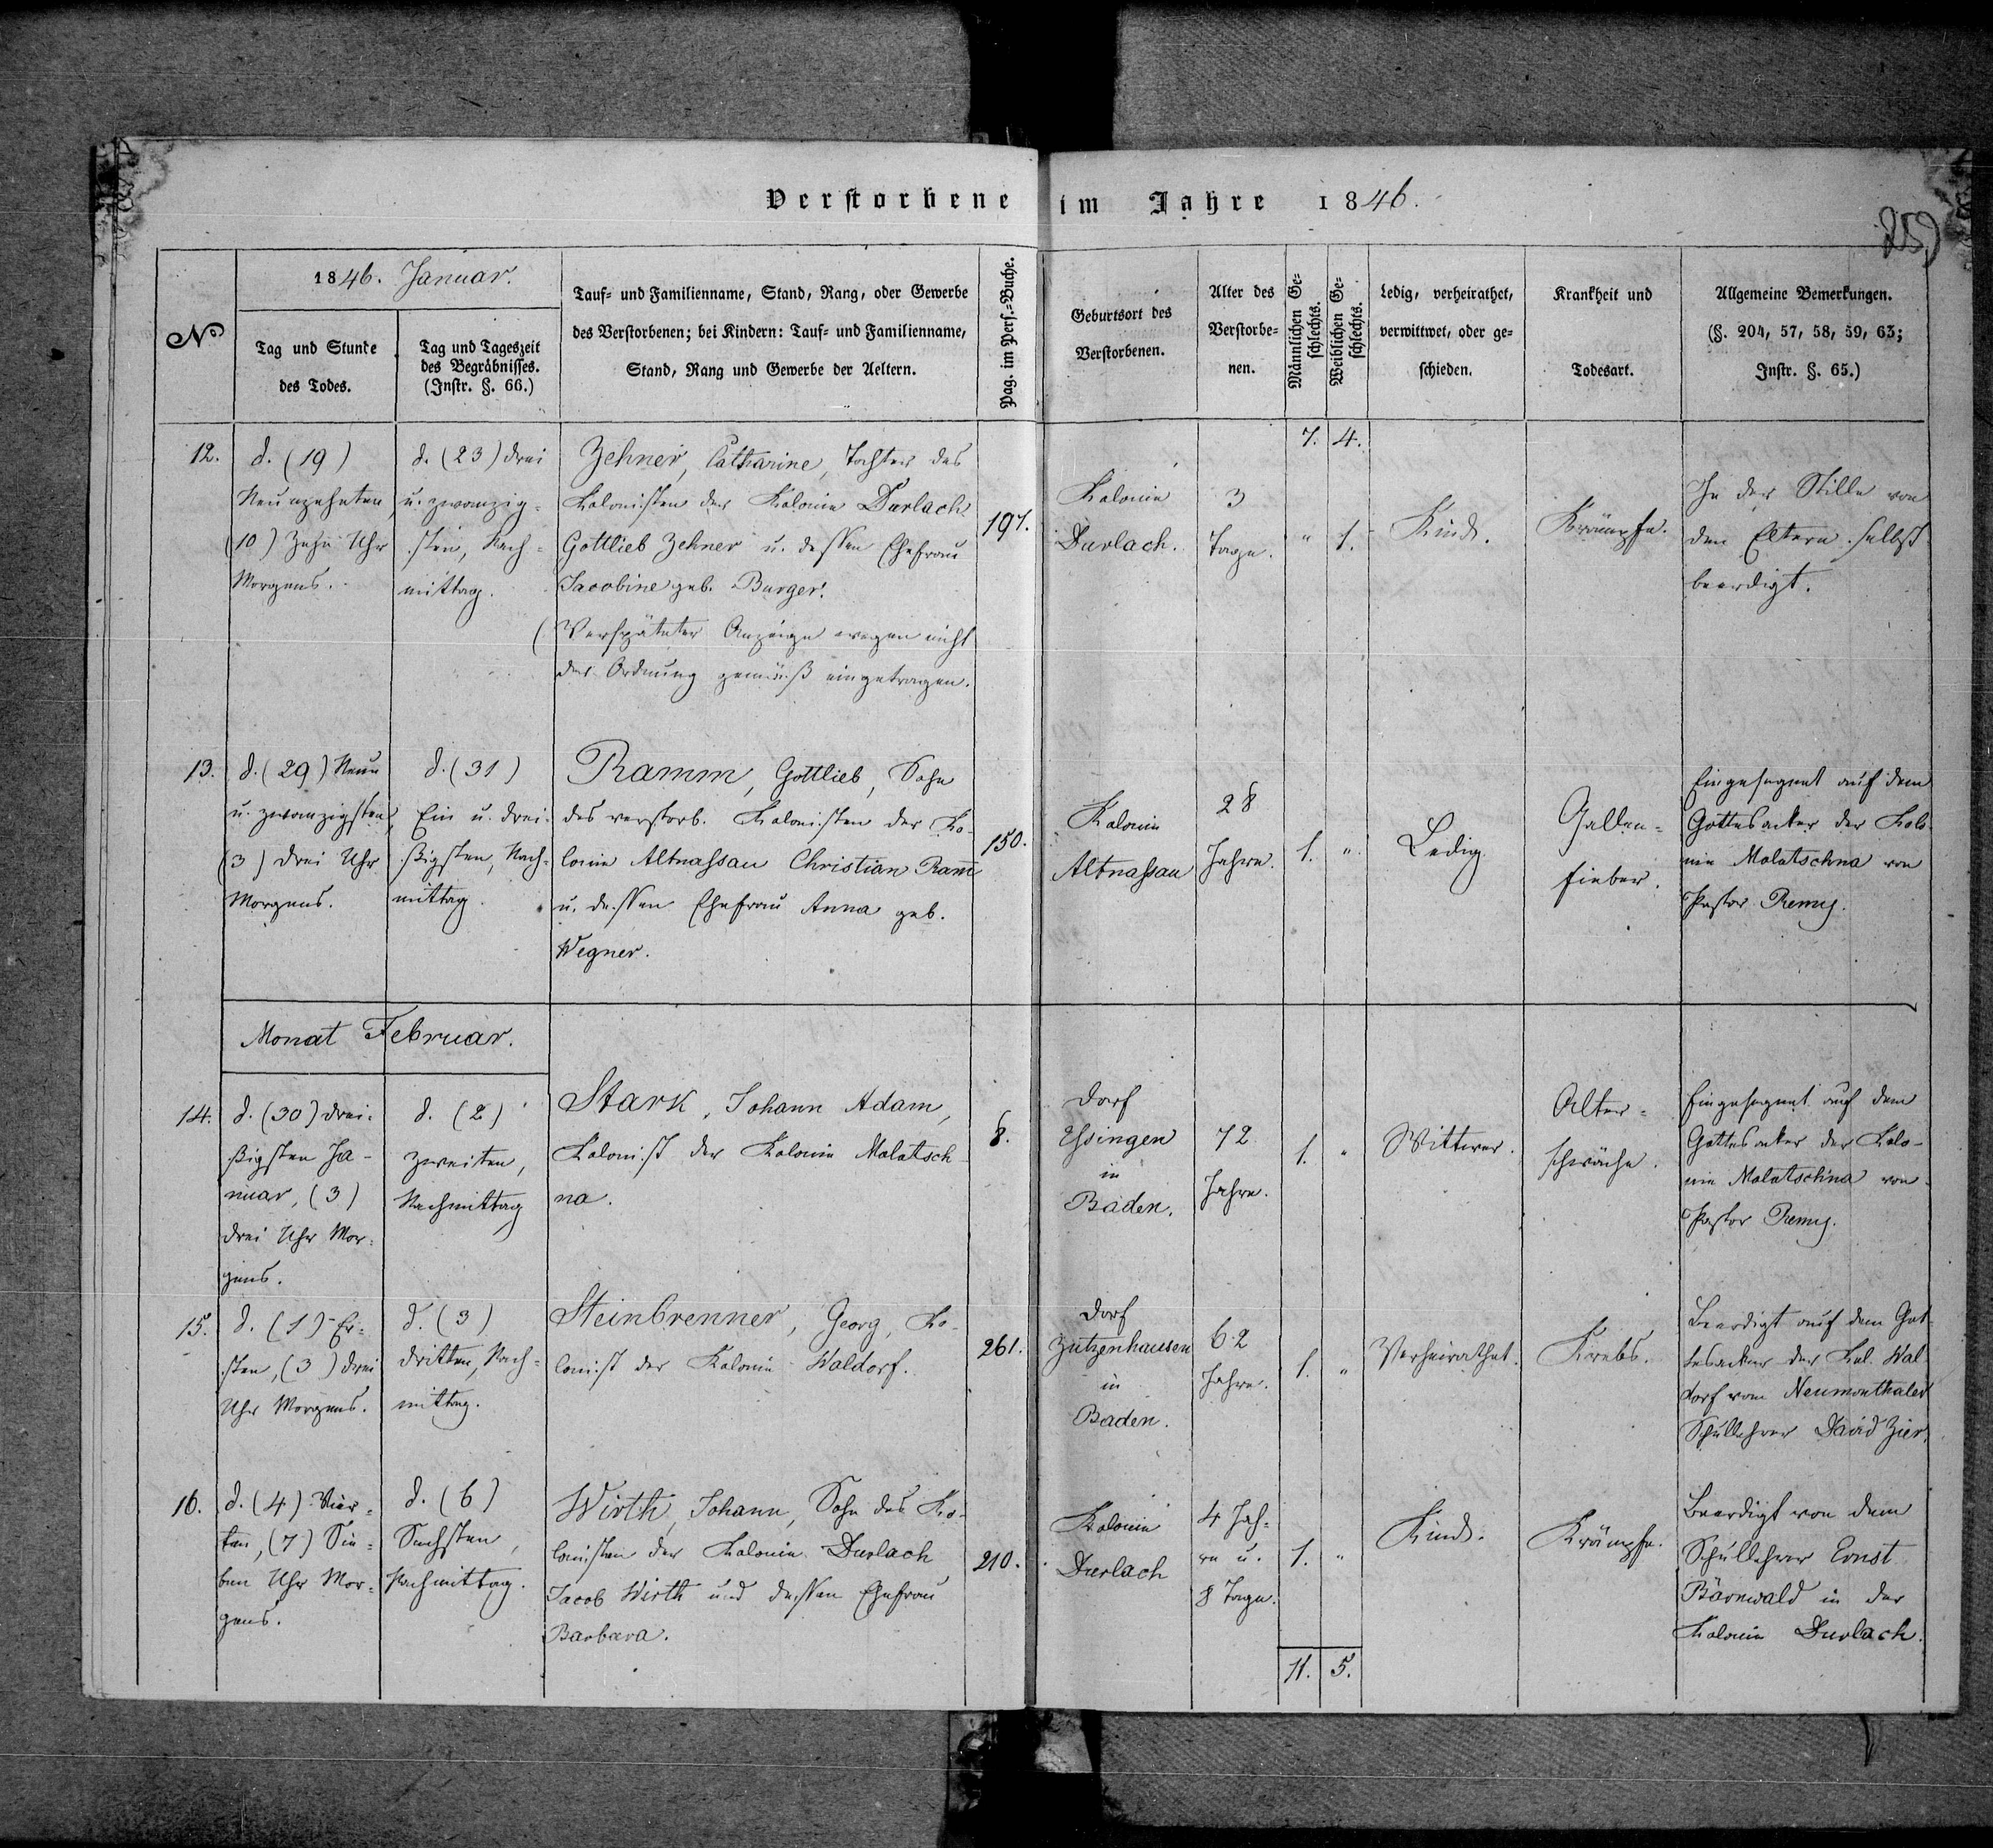 Verstorbene im Jahre 1846.
259
N
1846. Januar.
Tag und Stunde
des Todes.
Tag und Tageszeit
des Begräbnisses.
(Instr. §. 66.)
Tauf- und Familienname, Stand, Rang, oder Gewerbe
des Verstorbenen; bei Kindern: Tauf- und Familienname,
Stand, Rang und Gewerbe der Aeltern.
Pag. im Pers.-Buche.
Geburtsort des
Verstorbenen.
Alter des
Verstorbe-
nen.
Männlichen Ge-
schlechts.
Weiblichen Ge-
schlechts.
Ledig, verheirathet,
verwittwet, oder ge-
schieden.
Krankheit und
Todesart.
Allgemeine Bemerkungen.
(§. 204, 57, 58, 59, 63;
Instr. §. 65.)
7. 4.
12.
d. (19)
Neunzehnten,
(10) Zehn Uhr
Morgens.
d. (23) drei
u. zwanzig-
sten, Nach-
mittag.
Zehner, Catharine, Tochter des
Kolonisten der Kolonie Durlach
Gottlieb Zehner u. dessen Ehefrau
Jacobine geb. Burger.
(Verspäteter Anzeige wegen nicht
der Ordnung gemäß eingetragen.
197.
Kolonie
Durlach.
3
Tage.
" 1.
Kind.
Krämpfe.
In der Stille von
den Eltern selbst
beerdigt.
13.
d. (29) Neun
u. zwanzigsten,
(3) drei Uhr
Morgens.
d. (31)
Ein u. drei-
ßigsten, Nach-
mittag.
Ramm, Gottlieb, Sohn
des verstorb. Kolonisten der Ko-
lonie Altnassau Christian Ram̄
u. dessen Ehefrau Anna geb.
Wegner.
150.
Kolonie
Altnassau
28
Jahre.
1. "
Ledig.
Gallen-
fieber.
Eingesegnet auf dem
Gottesacker der Kolo-
nie Molotschna von
Pastor Remy.
Monat Februar.
14.
d. (30) drei-
ßigsten Ja-
nuar, (3)
drei Uhr Mor-
gens.
d. (2)
zweiten,
Nachmittag
Stark, Johann Adam,
Kolonist der Kolonie Molotsch-
na.
8.
Dorf
Essingen
in
Baden.
72
Jahre.
1. "
Wittwer.
Alter-
schwäche.
Eingesegnet auf dem
Gottesacker der Kolo-
nie Molotschna von
Pastor Remy.
15.
d. (1) Er-
sten, (3) drei
Uhr Morgens.
d. (3)
dritten, Nach-
mittag.
Steinbrenner, Georg, Ko-
lonist der Kolonie Waldorf.
261.
Dorf
Zutzenhausen
in
Baden.
62
Jahre.
1. "
Verheirathet.
Krebs.
Beerdigt auf dem Got-
tesacker der Kol. Wal-
dorf vom Neumonthaler
Schullehrer David Zier.
16.
d. (4) Vier-
ten, (7) Sie-
ben Uhr Mor-
gens.
d. (6)
Sechsten,
Nachmittag.
Wirth, Johann, Sohn des Ko-
lonisten der Kolonie Durlach
Jacob Wirth und dessen Ehefrau
Barbara.
210.
Kolonie
Durlach
4 Jah-
re u.
8 Tage.
1. "
Kind.
Krämpfe.
Beerdigt von dem
Schullehrer Ernst
Bärnwald in der
Kolonie Durlach.
11. 5.